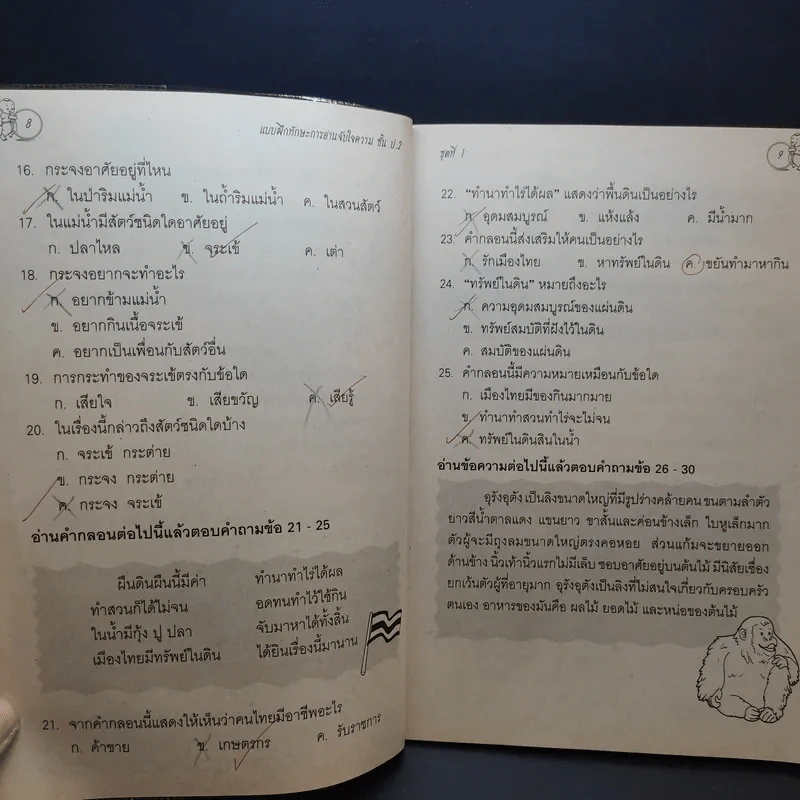 8
แบบฝึกทักษะการอ่านจับใจความ ชั้น ป.2
16. กระจงอาศัยอยู่ที่ไหน
ก. ในป่าริมแม่น้ำ ข. ในถ้ำริมแม่น้ำ ค. ในสวนสัตว์
17. ในแม่น้ำมีสัตว์ชนิดใดอาศัยอยู่
ก. ปลาไหล ข. จระเข้ ค. เต่า
18. กระจงอยากจะทำอะไร
ก. อยากข้ามแม่น้ำ
ข. อยากกินเนื้อจระเข้
ค. อยากเป็นเพื่อนกับสัตว์อื่น
19. การกระทำของจระเข้ตรงกับข้อใด
ก. เสียใจ ข. เสียขวัญ ค. เสียรู้
20. ในเรื่องนี้กล่าวถึงสัตว์ชนิดใดบ้าง
ก. จระเข้ กระต่าย
ข. กระจง กระต่าย
ค. กระจง จระเข้
อ่านคำกลอนต่อไปนี้แล้วตอบคำถามข้อ 21 - 25
ผืนดินผืนนี้มีค่า ทำนาทำไร่ได้ผล
ทำสวนก็ได้ไม่จน อดทนทำไว้ใช้กิน
ในน้ำมีกุ้ง ปู ปลา จับมาหาได้ทั้งสิ้น
เมืองไทยมีทรัพย์ในดิน ได้ยินเรื่องนี้มานาน
21. จากคำกลอนนี้แสดงให้เห็นว่าคนไทยมีอาชีพอะไร
ก. ค้าขาย ข. เกษตรกร ค. รับราชการ
ชุดที่ 1
9
22. “ทำนาทำไร่ได้ผล” แสดงว่าพื้นดินเป็นอย่างไร
ก. อุดมสมบูรณ์ ข. แห้งแล้ง ค. มีน้ำมาก
23. คำกลอนนี้ส่งเสริมให้คนเป็นอย่างไร
ก. รักเมืองไทย ข. หาทรัพย์ในดิน ค. ขยันทำมาหากิน
24. “ทรัพย์ในดิน” หมายถึงอะไร
ก. ความอุดมสมบูรณ์ของแผ่นดิน
ข. ทรัพย์สมบัติที่ฝังไว้ในดิน
ค. สมบัติของแผ่นดิน
25. คำกลอนนี้มีความหมายเหมือนกับข้อใด
ก. เมืองไทยมีของกินมากมาย
ข. ทำนาทำสวนทำไร่จะไม่จน
ค. ทรัพย์ในดินสินในน้ำ
อ่านข้อความต่อไปนี้แล้วตอบคำถามข้อ 26 - 30
อุรังอุตัง เป็นลิงขนาดใหญ่ที่มีรูปร่างคล้ายคน ขนตามลำตัว
ยาวสีน้ำตาลแดง แขนยาว ขาสั้นและค่อนข้างเล็ก ใบหูเล็กมาก
ตัวผู้จะมีถุงลมขนาดใหญ่ตรงคอหอย ส่วนแก้มจะขยายออก
ด้านข้าง นิ้วเท้านิ้วแรกไม่มีเล็บ ชอบอาศัยอยู่บนต้นไม้ มีนิสัยเชื่อง
ยกเว้นตัวผู้ที่อายุมาก อุรังอุตังเป็นลิงที่ไม่สนใจเกี่ยวกับครอบครัว
ตนเอง อาหารของมันคือ ผลไม้ ยอดไม้ และหน่อของต้นไม้